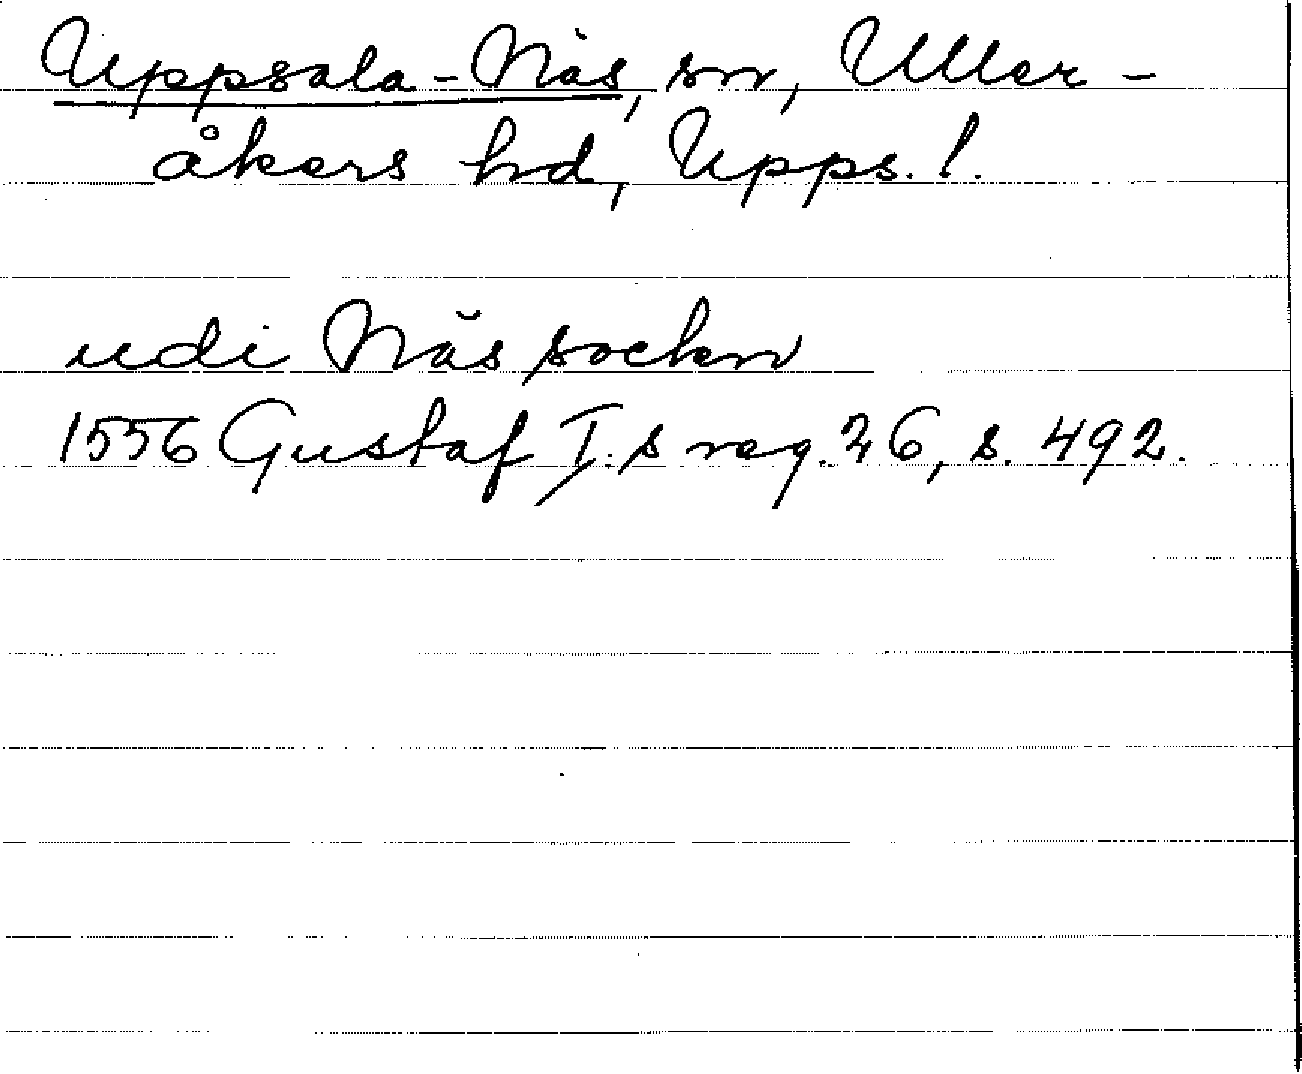 Uppsala-Näs, sn, Uller-
åkers hd, Upps. l.
udi Näs sockn
1556 Gustaf I:s reg. 26, s. 492.